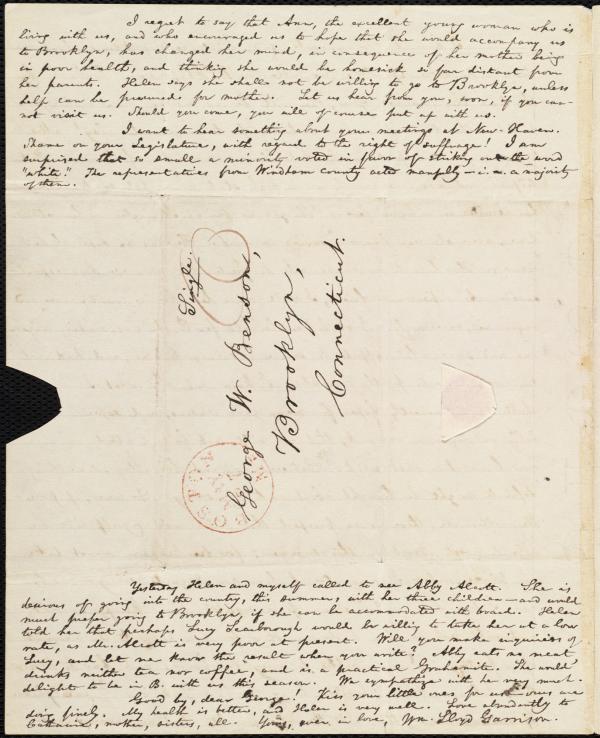 I regret to say that Ann, the excellent young woman who is
living with us, and who encouraged us to hope that she would accompany us
to Brooklyn, has changed her mind, in consequence of her mother being
in poor health, and thinking she would be homesick so far distant from
her parents. Helen says she shall not be willing to go to Brooklyn, unless
help can be procured for mother. Let us hear from you, soon, if you can-
not visit us. Should you come, you will of course put up with us.
I want to hear something about your meetings at New-Haven.
Shame on your Legislature, with regard to the right of suffrage! I am
surprised that so small a minority voted in favor of striking out the word
"white." The representatives from Windham County acted manfully—i. e. a majority
of them.
Single.
George W. Benson,
Brooklyn,
Connecticut.
BOSTON
Yesterday Helen and myself called to see Abby Alcott. She is
desirous of going into the country, this summer, with her three children—and would
much prefer going to Brooklyn, if she can be accomodated with board. Helen
told her that perhaps Lucy Scarborough would be willing to take her at a low
rate, as Mr. Alcott is very poor at present. Will you make inquiries of
Lucy, and let me know the result when you write? Abby eats no meat
drinks neither tea nor coffee, and is a practical Grahamite. She would
delight to be in B. with us this season. We sympathize with her very much.
Good by, dear George! Kiss your little ones for us—ours are
doing finely. My health is better, and Helen is very well. Love abundantly to
Catharine, mother, sisters, all. Yours, ever in love, Wm. Lloyd Garrison.